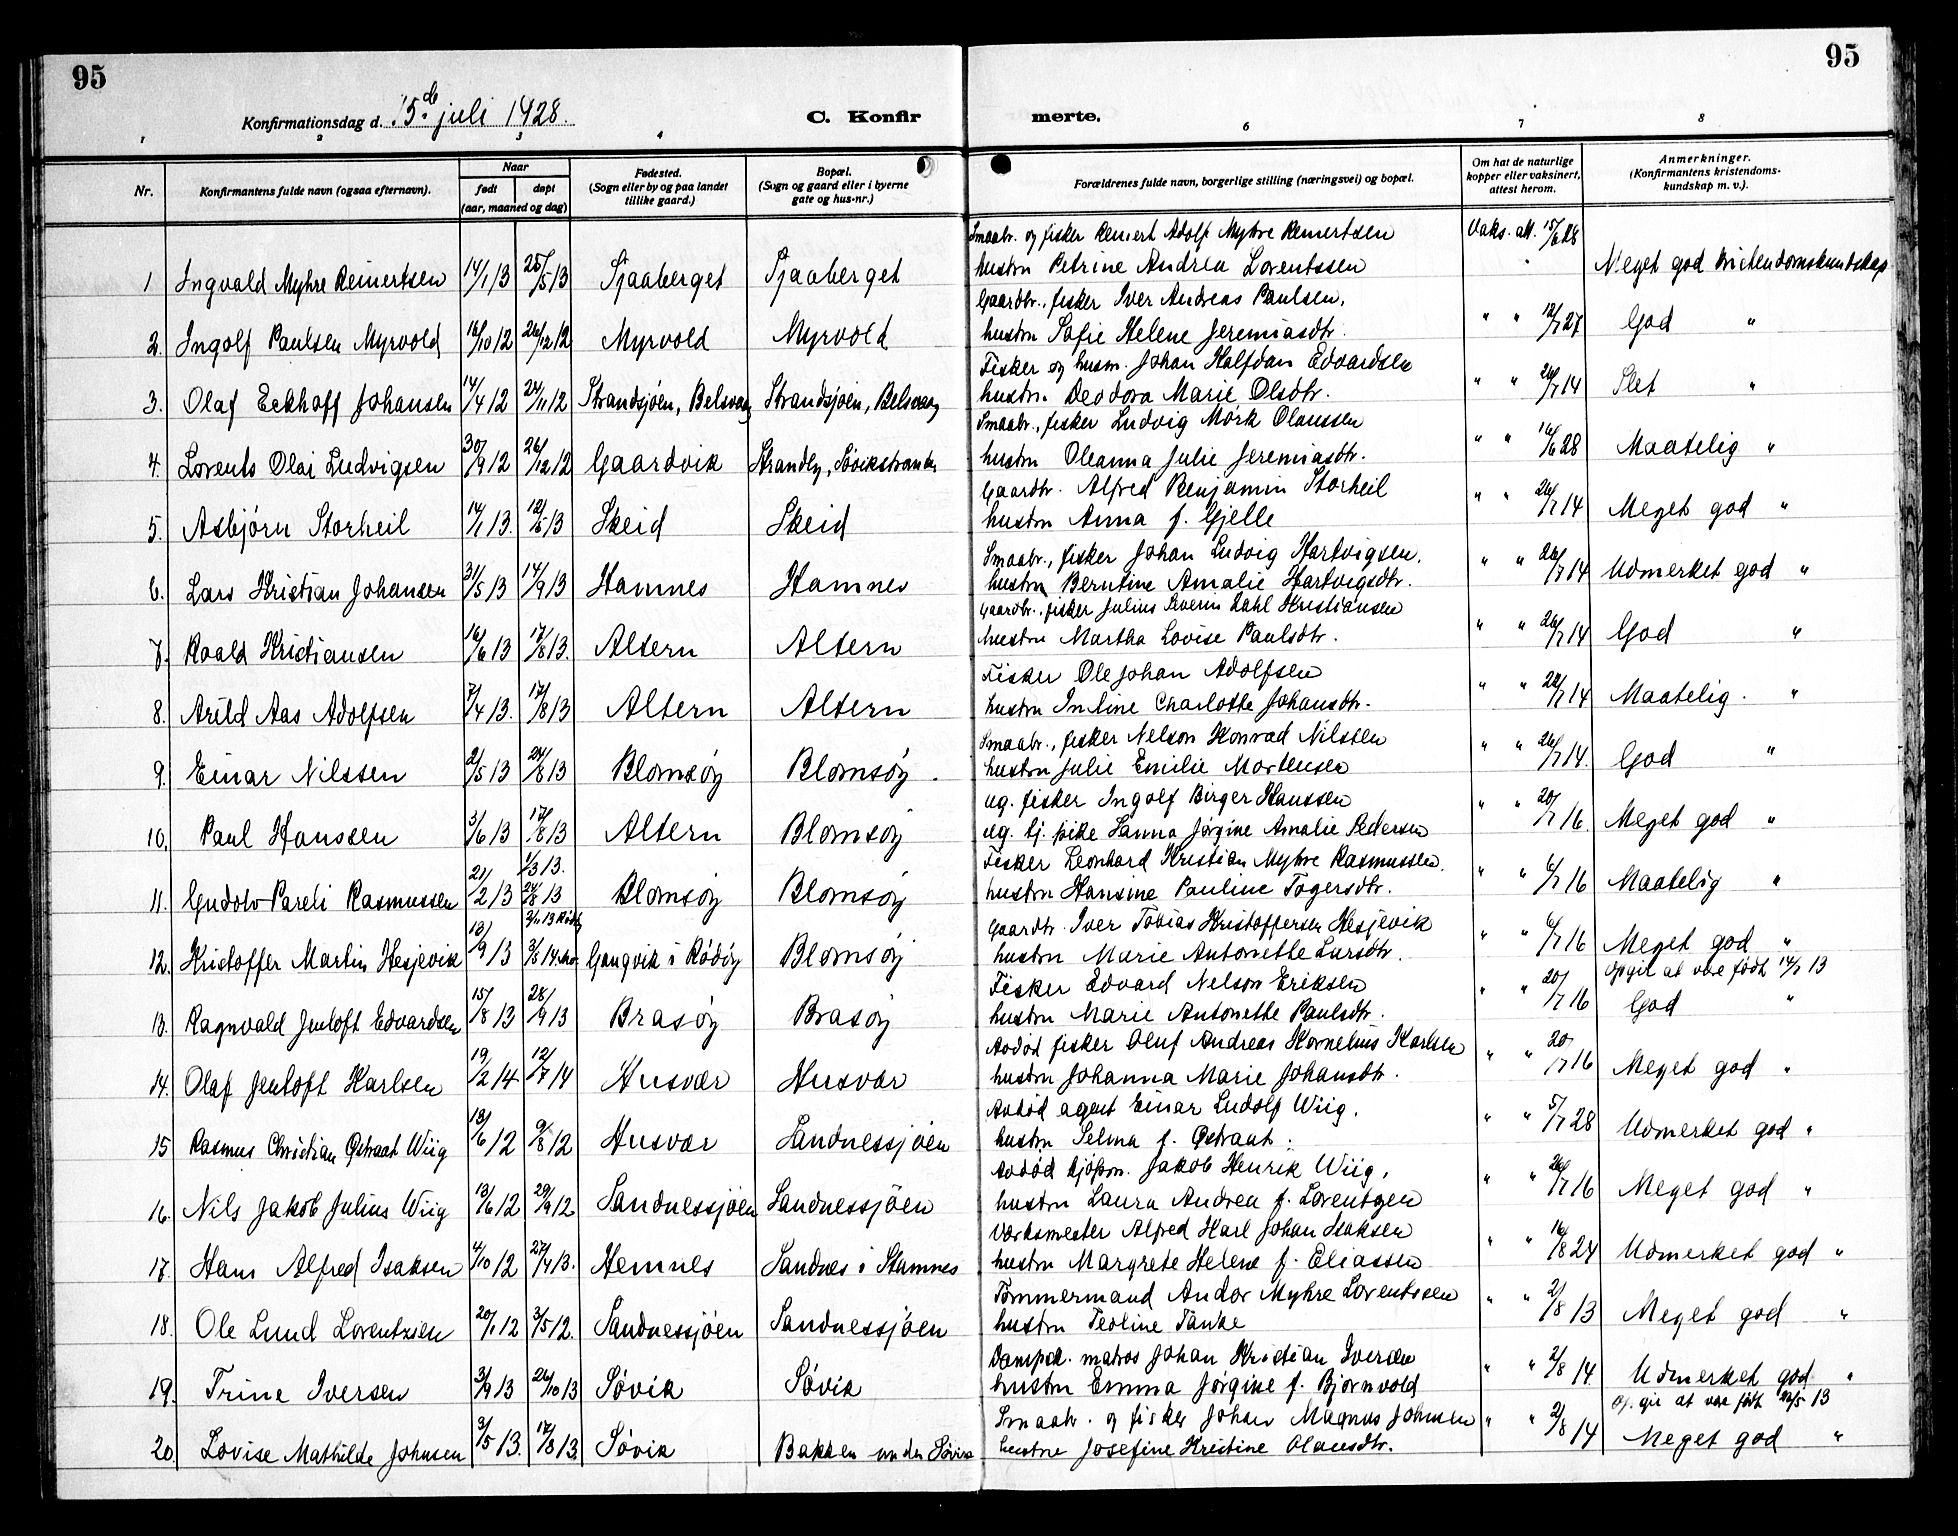 95
95
Konfirmationsdag d. 15de juli 1928.
C. Konfir merte.
1 2 3 4 6 7 8
Nr. Konfirmantens fulde navn (ogsaa efternavn). Naar født døpt (aar, maaned og dag) Fødested. (Sogn eller by og paa landet tillike gaard.) Bopæl. (Sogn og gaard eller i byerne gate og hus-nr.) Forældrenes fulde navn, borgerlige stilling (næringsvei) og bopæl. Om hat de naturlige kopper eller vaksinert, attest herom. Anmerkninger. (Konfirmantens kristendoms-kundskap m. v.).
Smaabr. og fisker Reinert Adolf Myhre Reinertsen Vaks. att. 15/6 28
1 Ingvald Myhre Reinertsen 14/1 13 25/5 13 Sjaaberget Sjaaberget hustru Petrine Andrea Lorentssen Meget god kristendomskundskap
Gaardbr., fisker Iver Andreas Paulsen,
2. Ingolf Paulsen Myrvold 16/10 12 26/12 12 Myrvold Myrvold hustru Sofie Helene Jeremiasdtr. " " 12/7 27 God "
Fisker og husm. Johan Halfdan Edvardsen
3. Olaf Eckhoff Johansen 14/4 12 24/11 12 Strandsjøen, Belsvaag Strandsjøen, Belsvaag hustru Deodora Marie Olsdtr. " " 26/7 14 Slet "
Smaabr., fisker Ludvig Mørk Olaussen
4. Lorents Olai Ludvigsen 30/9 12 26/12 12 Gaardvik Strandby, Søvikstranden hustru Oleanna Julie Jeremiasdtr. " " 16/6 28 Maatelig "
Gaardbr. Alfred Benjamin Storheil
5. Asbjørn Storheil 14/1 13. 12/5 13 Skeid Skeid hustru Anna f. Gjelle " " 26/7 14 Meget god "
Smaabr., fisker Johan Ludvig Hartvigsen.
6. Lars Kristian Johansen 31/5 13 14/9 13 Hamnes Hamnes hustru Berntine Amalie Hartvigsdtr. " " 26/7 14 Udmerket god "
Gaardbr., fisker Julius Severin Dahl Kristiansen
7. Roald Kristiansen 16/6 13 17/8 13. Altern Altern hustru Martha Lovise Paulsdtr. " " 26/7 14 God "
Fisker Ole Johan Adolfsen
8. Arild Aas Adolfsen 7/4 13. 17/8 13 Altern Altern hustru Intine Charlotte Johansdtr. " " 22/7 14 Maatelig. "
Smaabr., fisker Nelson Konrad Nilssen
9. Einar Nilssen 2/5 13 24/8 13 Blomsøy Blomsøy. hustru Julie Emilie Mortensen " " 26/7 14. God "
ug. fisker Ingolf Birger Hanssen
10. Paul Hanssen 3/6 13 17/8 13 Altern Blomsøy ug. tj. pike Hanna Jørgine Amalie Pedersen " " 20/7 16. Meget god "
1/3 13. Fisker Leonhard Kristian Myhre Rasmussen.
11. Gudolv Pareli Rasmussen 21/2 13 24/8 13 Blomsøy Blomsøy hustru Hansine Pauline Togersdtr. " " 6/7 16 Maatelig "
2/11 13 Gaardbr. Iver Tobias Kristoffersen Hesjevik
12. Kristoffer Martin Hesjevik 13/9 13 3/5 14 Gangvik i Rødøy Blomsøy hustru Marie Antonette Larsdtr. " " 6/7 16 Meget god "
Fisker Edvard Nelson Eriksen Opgir at vøe født 14/7 13
13. Ragnvald Jentoft Edvardsen 15/8 13 28/9 13 Brasøy Brasøy hustru Marie Antonette Paulsdtr. " " 20/7 16 God "
Avdød fisker Oluf Andreas Kornelius Karlsen
14. Olaf Jentoft Karlsen 19/2 14 12/7 14 Husvær Husvær hustru Johanna Marie Johansdtr. " " 20/7 16 Meget god "
Avdød agent Einar Ludolf Wiig.
15 Rasmus Christian Østraat Wiig 13/6 12 9/8 12 Husvær Sandnessjøen hustru Selma f. Østraat. " " 5/7 28 Udmerket god "
Avdød kjøpm. Jakob Henrik Wiig,
16. Nils Jakob Julius Wiig 13/6 12 29/9 12 Sandnessjøen Sandnessjøen hustru Laura Andrea f. Lorentzen " " 26/7 16 Meget god "
Værksmester Alfred Karl Johan Isaksen
17. Hans Alfred Isaksen 4/10 12 27/4 13. Hemnes Sandnes i Stamnes hustru Margrete Helene f. Eliassen " " 16/8 24 Udmerket god "
Tømmermand Andor Myhre Lorentzen
18. Ole Lund Lorentzen 20/1 12 3/5 12. Sandnessjøen Sandnessjøen hustru Teoline Tanke " " 2/8 13 Meget god "
Dampsk. matros Johan Kristian Iversen
19. Trine Iversen 3/9 13 26/10 13 Søvik Søvik hustru Emma Jørgine f. Bjørnvold " " 2/8 14 Udmerket god "
Smaabr. og fisker Johan Magnus Johnsen Opgir at vøe født 22/5 13
20. Lovise Mathilde Johnsen 3/5 13. 17/8 13. Søvik Bakken under Søvik hustru Josefine Kristine Olausdtr. " " 2/8 14 Meget god "